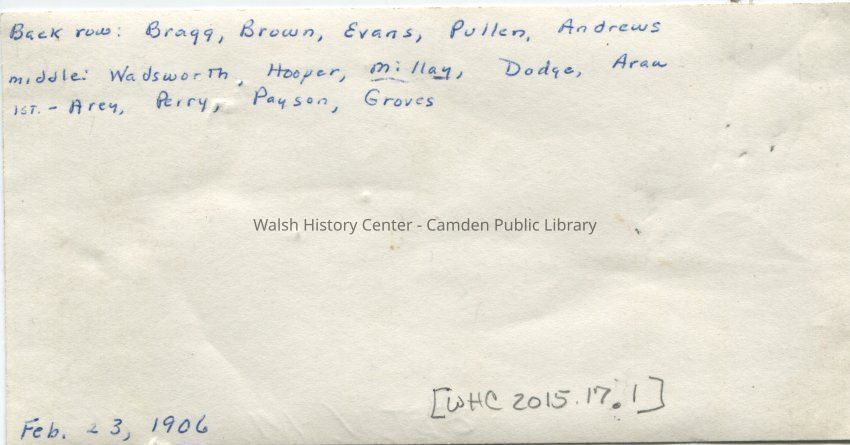 Back row: Bragg, Brown, Evans, Pullen, Andrews
middle: Wadsworth, Hooper, Millay, Dodge, Arau
1st. - Arey, Perry, Payson, Groves
Walsh History Center - Camden Public Library
[WHC 2015.17.1]
Feb. 23, 1906